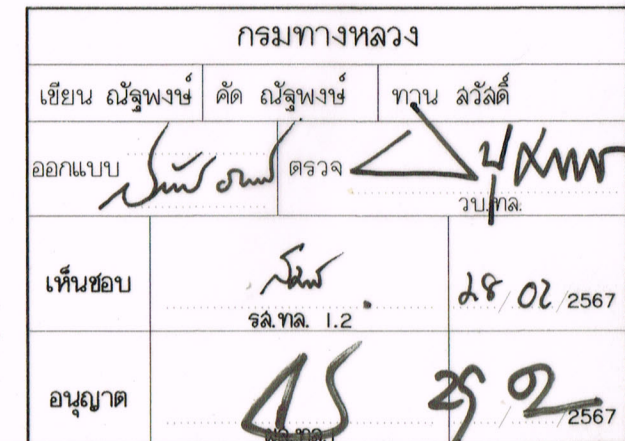 กรมทางหลวง
เขียน ณัฐพงษ์ คัด ณัฐพงษ์ ทาน สวัสดิ์
ออกแบบ ตรวจ
วบ.ทล.
เห็นชอบ 28/02/2567
รส.ทล. 1.2
อนุญาต 29/2/2567